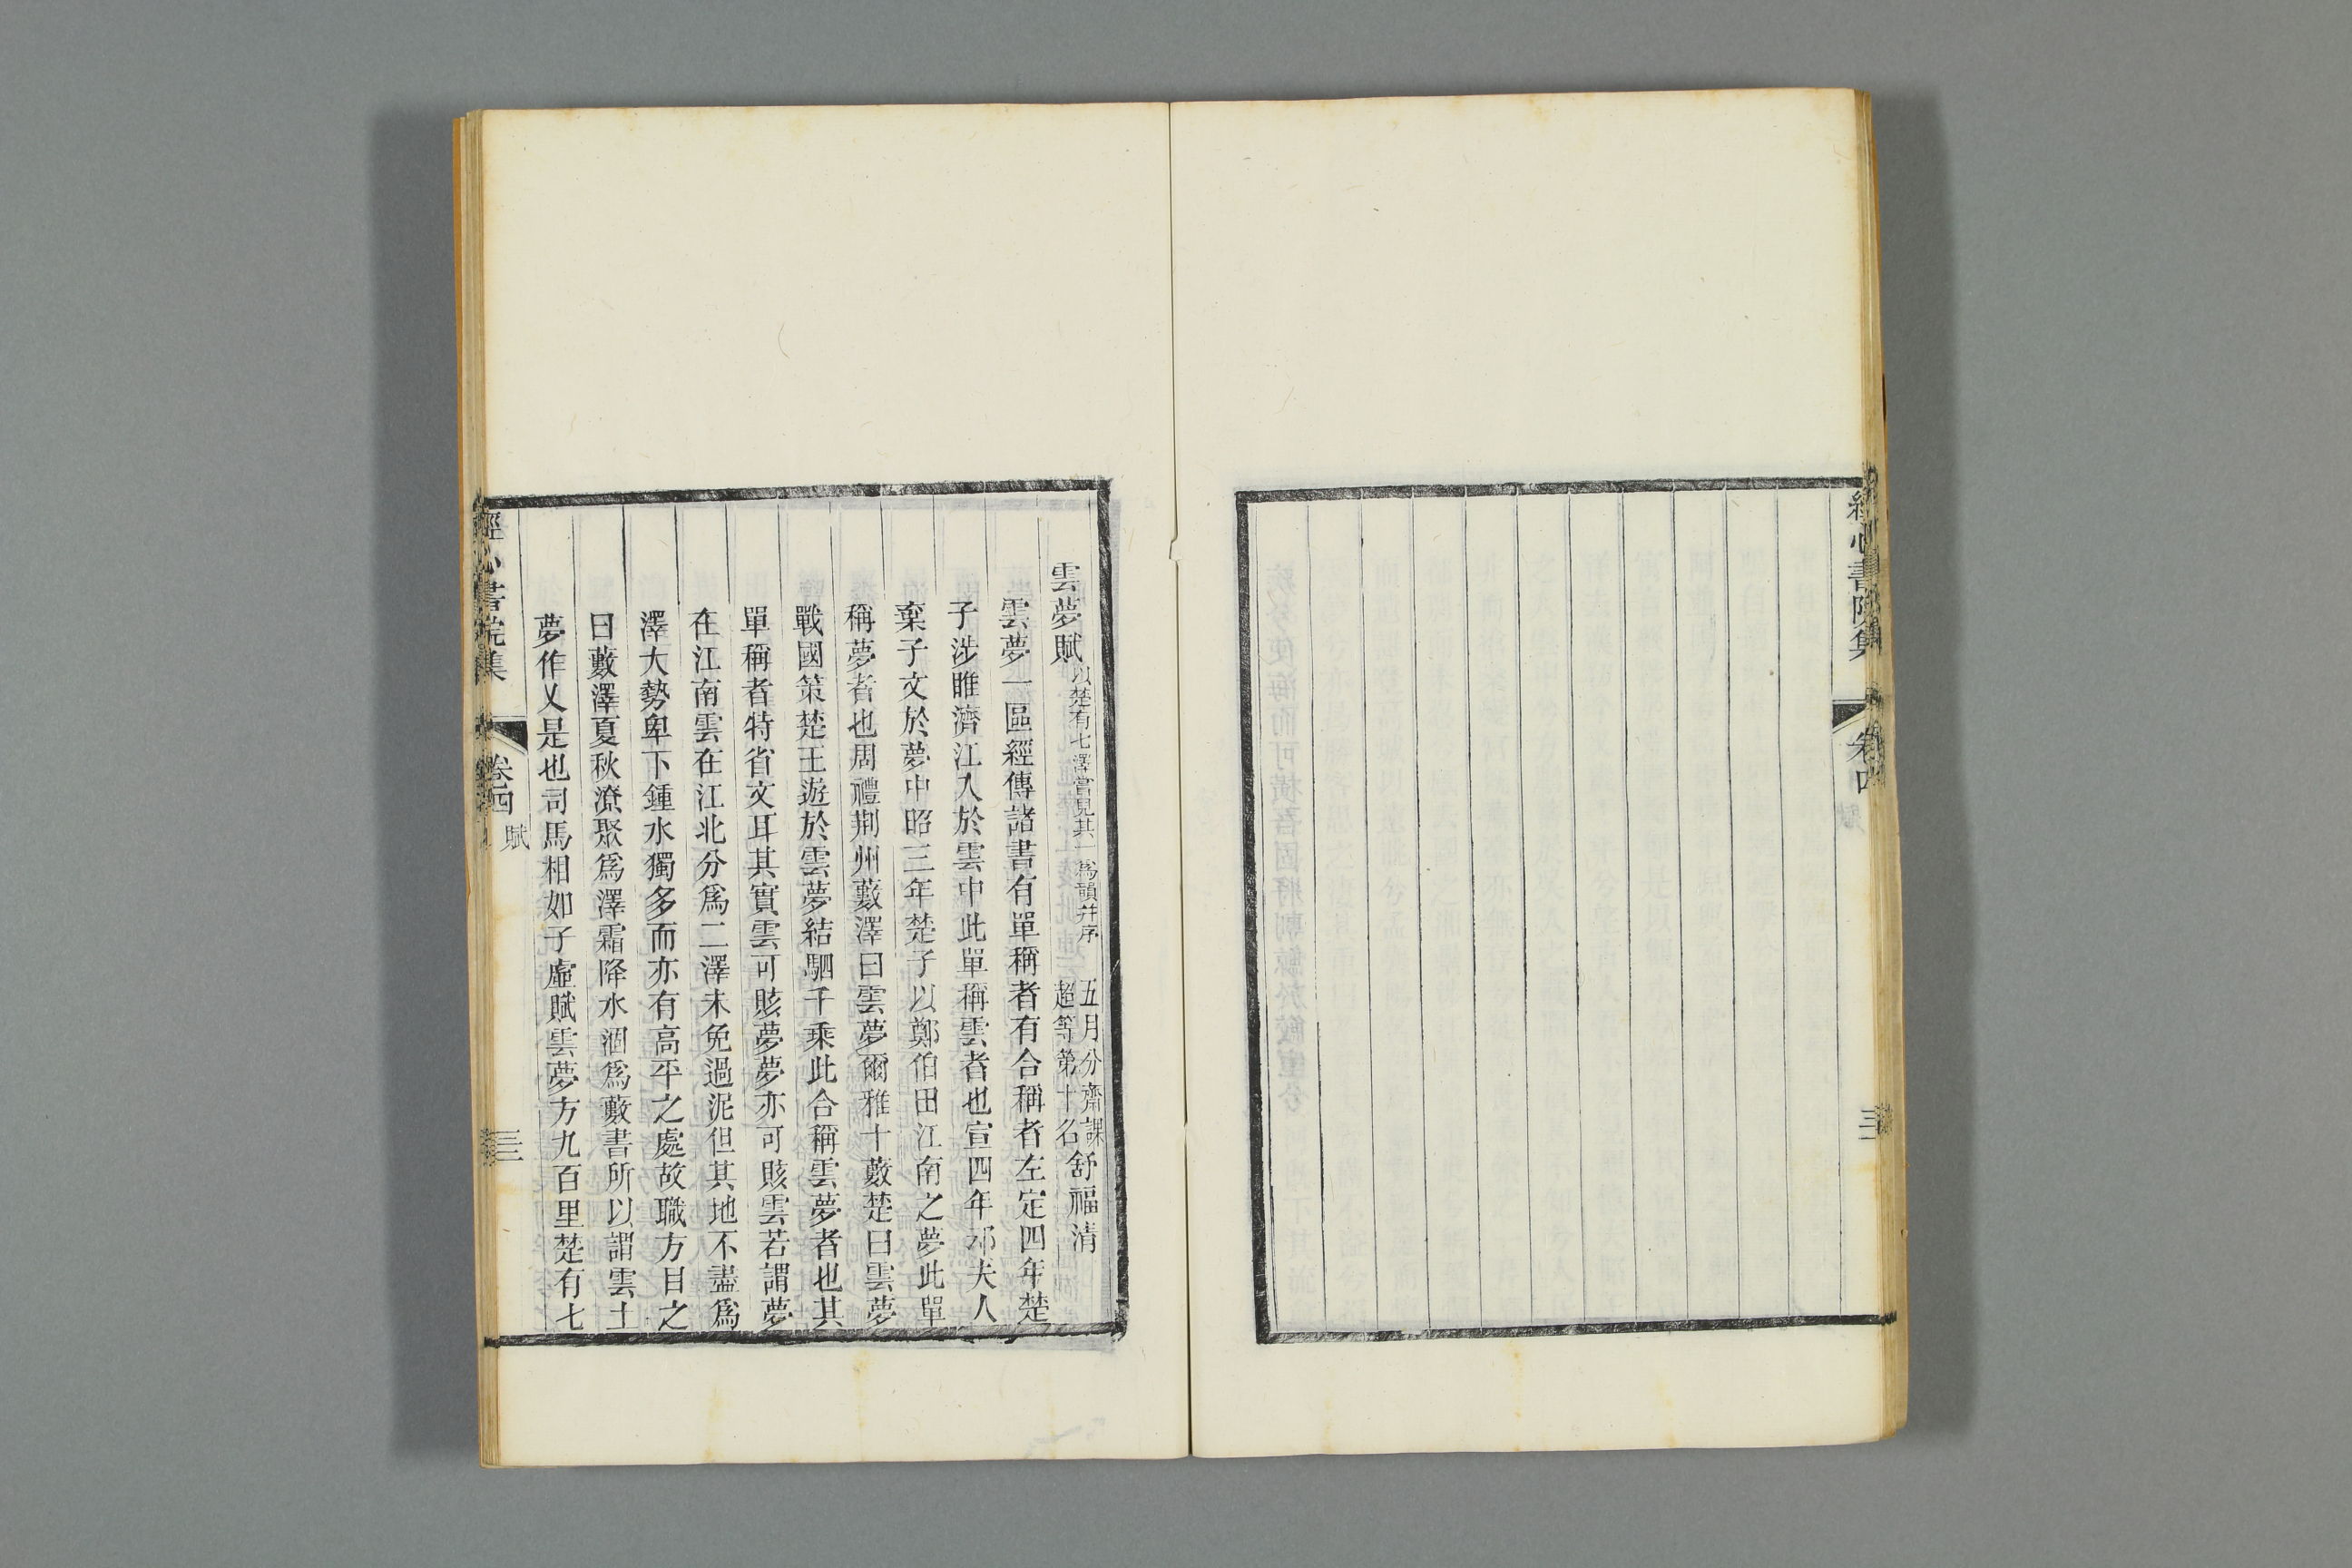 經心書院集
卷四
賦
三
雲夢賦 以楚有七澤嘗見其一為韻并序 五月分齋課超等第十名 舒福清
雲夢一區經傳諸書有單稱者有合稱者左定四年楚
子涉睢濟江入於雲中此單稱雲者也宣四年䢵夫人
棄子文於夢中昭三年楚子以鄭伯田江南之夢此單
稱夢者也周禮荆州藪澤曰雲夢爾雅十藪楚曰雲夢
戰國策楚王遊於雲夢結駟千乘此合稱雲夢者也其
單稱者特省文耳其實雲可賅夢夢亦可賅雲若謂夢
在江南雲在江北分爲二澤未免過泥但其地不盡爲
澤大勢卑下鍾水獨多而亦有高平之處故職方目之
曰藪澤夏秋潦聚爲澤霜降水涸爲藪書所以謂雲土
夢作乂是也司馬相如子虛賦雲夢方九百里楚有七
經心書院集
卷四
賦
三